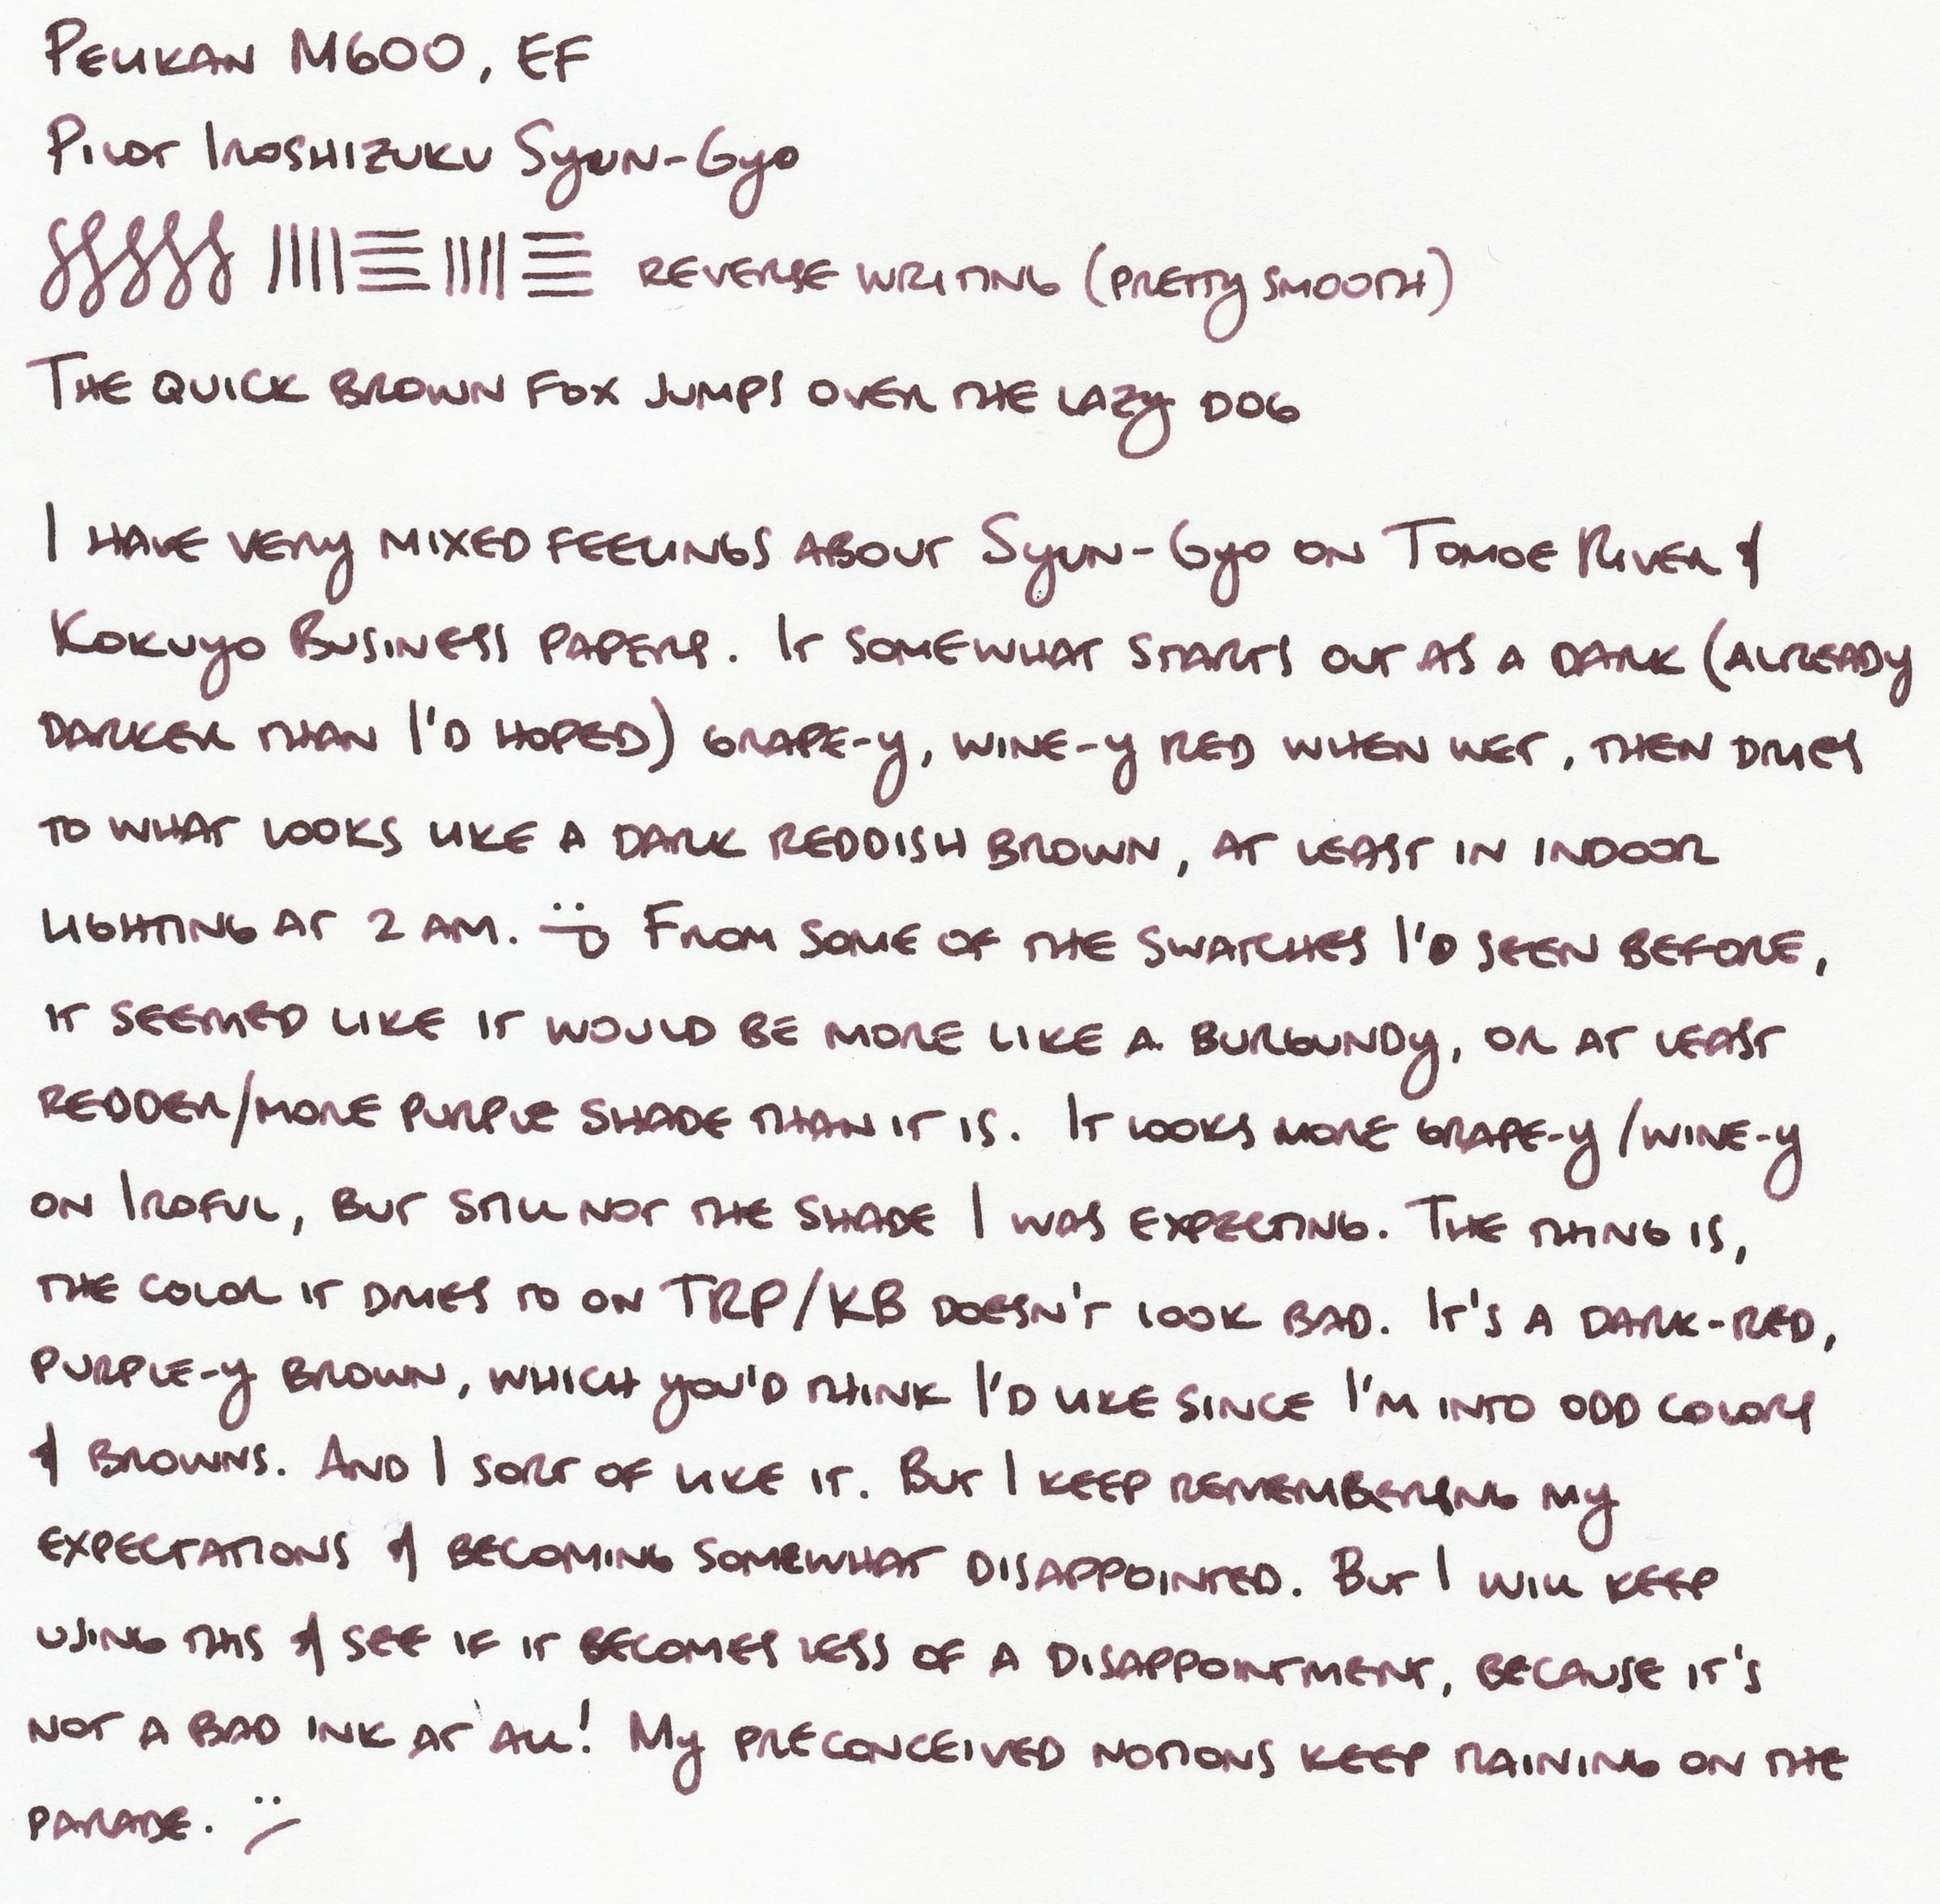 Pelikan M600, EF
Pilot Iroshizuku Syun-Gyo
Reverse writing (pretty smooth)
The quick brown fox jumps over the lazy dog
I have very mixed feelings about Syun-Gyo on Tomoe River &
Kokuyo Business papers. It somewhat starts out as a dark (already
darker than I'd hoped) grape-y, wine-y red when wet, then dries
to what looks like a dark reddish brown, at least in indoor
lighting at 2 AM. :P From some of the swatches I'd seen before,
it seemed like it would be more like a burgundy, or at least
redder/more purple shade than it is. It looks more grape-y/wine-y
on Iroful, but still not the shade I was expecting. The thing is,
the color it dries to on TRP/KB doesn't look bad. It's a dark-red,
purple-y brown, which you'd think I'd like since I'm into odd colors
& browns. And I sort of like it. But I keep remembering my
expectations & becoming somewhat disappointed. But I will keep
using this & see if it becomes less of a disappointment, because it's
not a bad ink at all! My preconceived notions keep raining on the
parade. :/